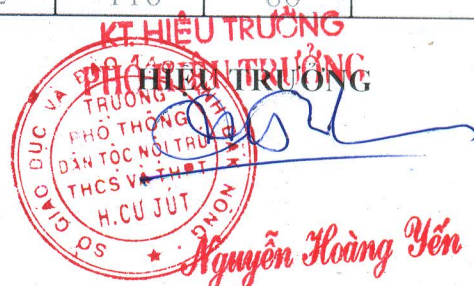 KT. HIỆU TRƯỞNG
PHÓ HIỆU TRƯỞNG
HIỆU TRƯỞNG
SỞ GIÁO DỤC VÀ ĐÀO TẠO TỈNH ĐĂK NÔNG
TRƯỜNG
PHỔ THÔNG
DÂN TỘC NỘI TRÚ
THCS VÀ THPT
H.CƯ JÚT
Nguyễn Hoàng Yến